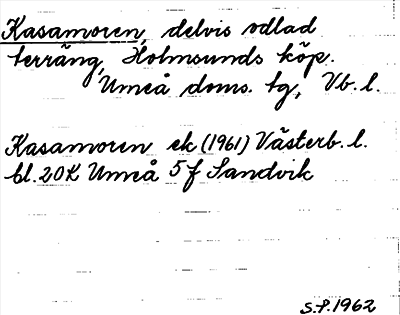 Kasamoren, delvis odlad
terräng, Holmsunds köp.
Umeå doms. tg, Vb. l.
Kasamoren ek (1961) Västerb. l.
bl. 20K Umeå 5f Sandvik
S.P. 1962